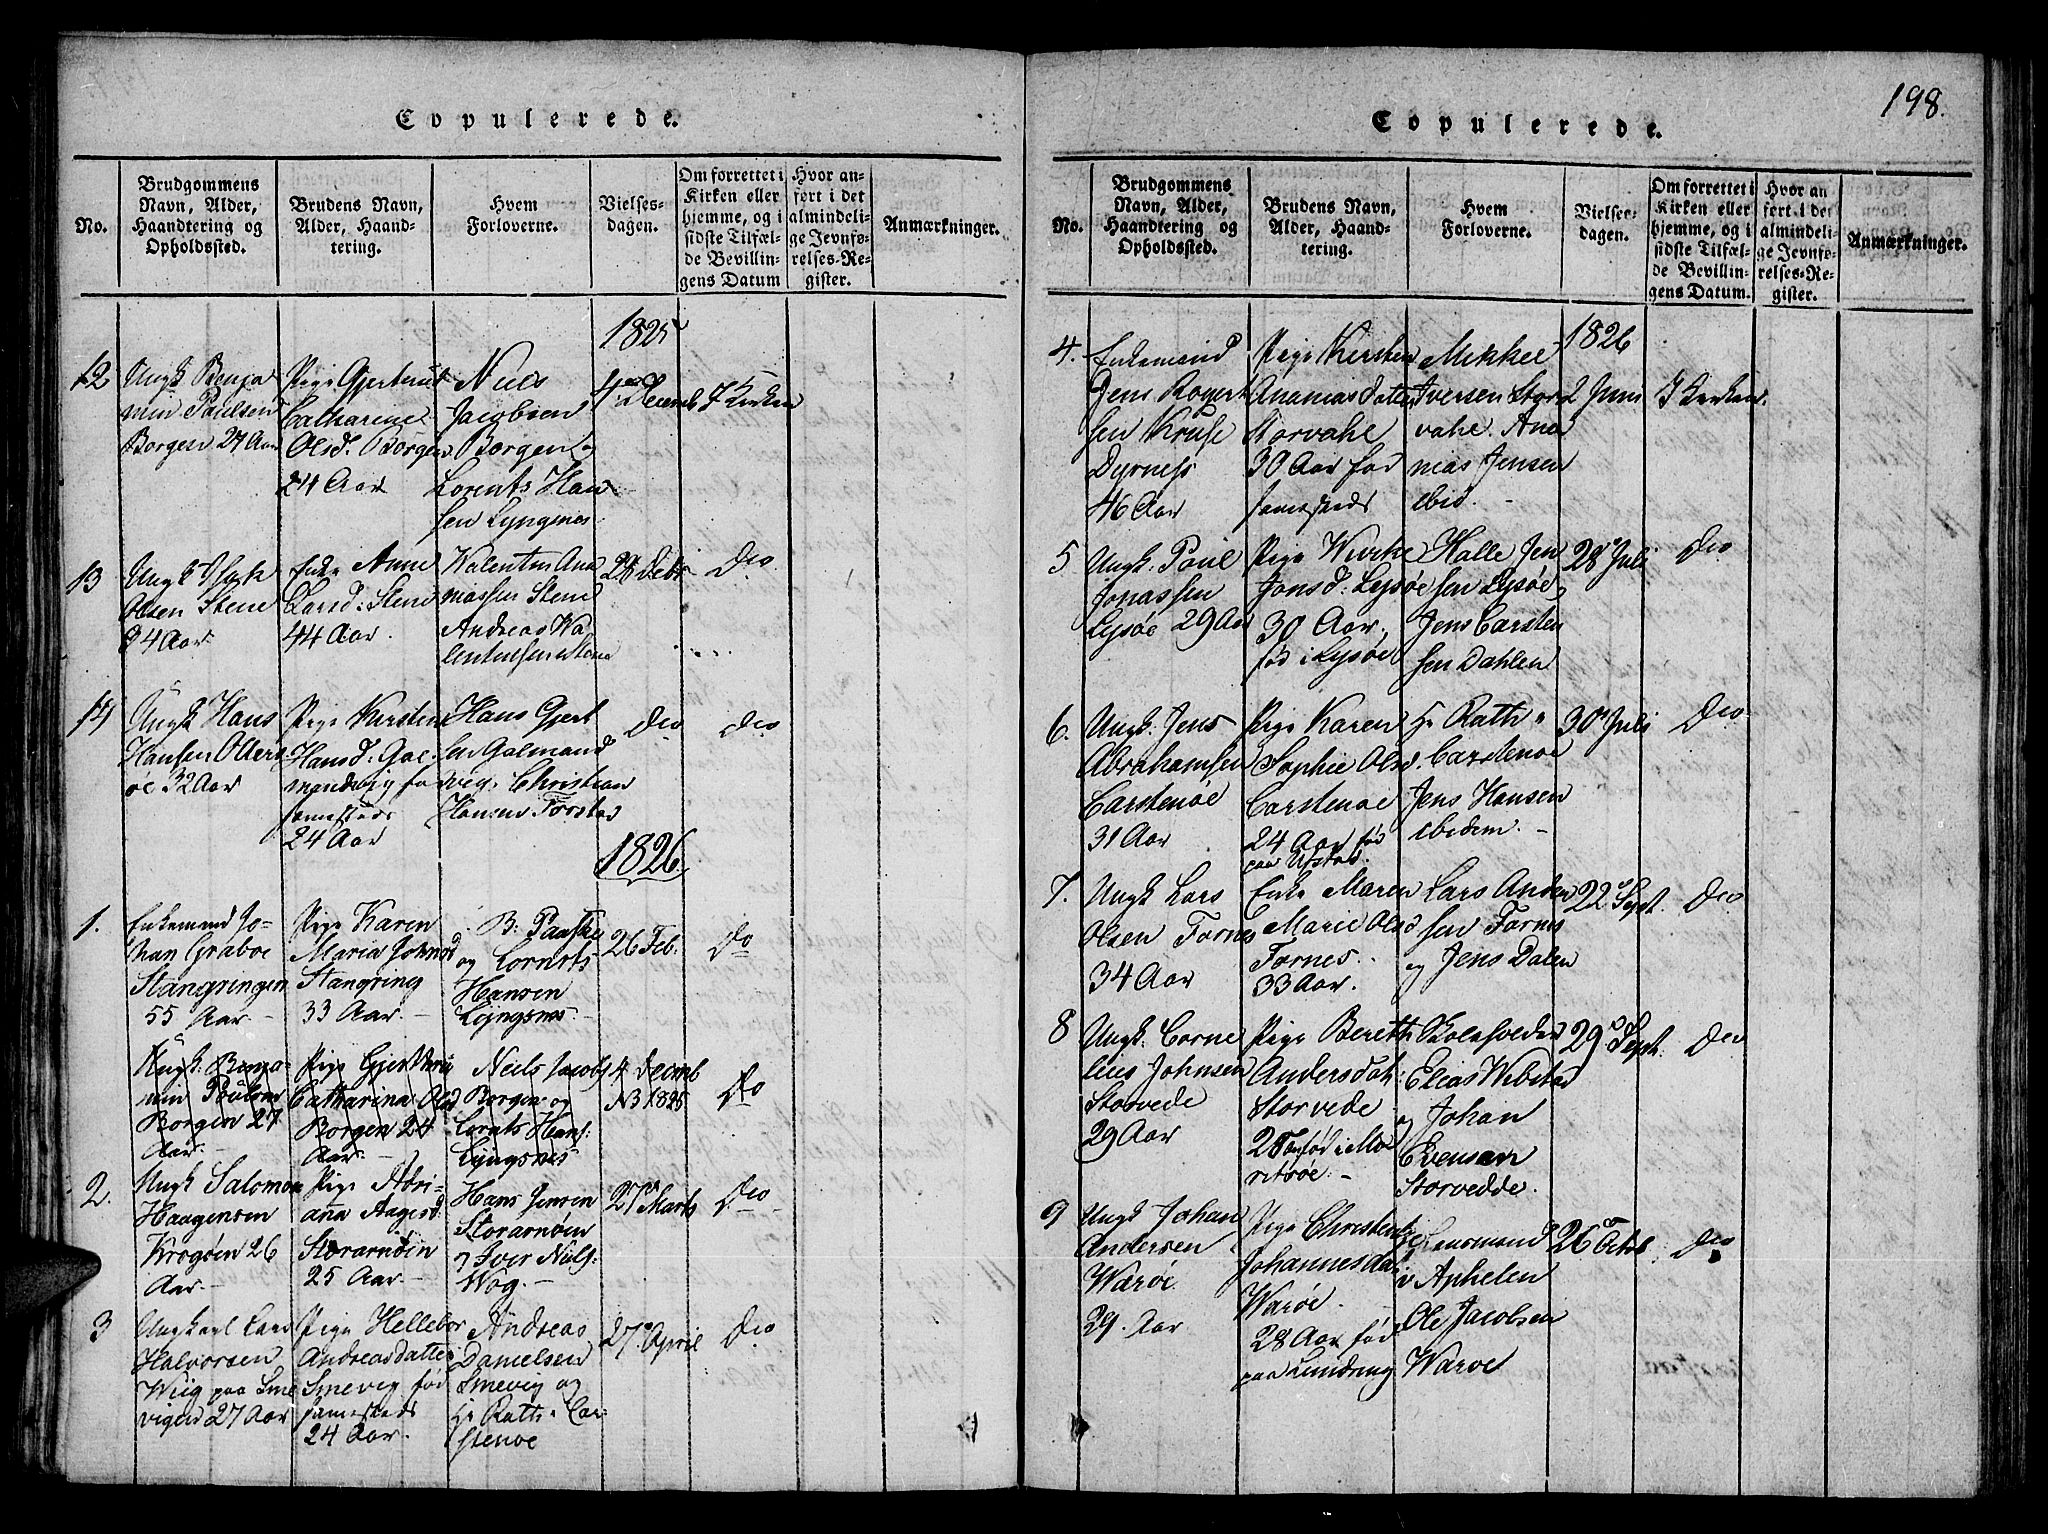 Copulerede.
No.
Brudgommens
Navn, Alder,
Haandtering og
Opholdssted.
Brudens Navn,
Alder, Haand-
tering.
Hvem
Forloverne.
Vielses-
dagen.
Om forrettet i
Kirken eller
hjemme, og i
sidste Tilfæl-
de Bevillin-
gens Datum
Hvor an-
ført i det
almindeli-
ge Jevnfø-
relses-Re-
gister.
Anmærkninger.
1825
12
Ungk Benja
min Paulsen
Borgen 27 Aar
Pige Gjertrut
Catharine
Olsd. Borgen
24 Aar
Niels
Jacobsen
Borgen
Lorents Han
sen Lyngsnes
4 Decemb
I Kirken
13
Ungk
Olsen Stene
34 Aar
Enke Anne
Larsd: Stene
44 Aar.
Valentin Ana
niassen Stene
Andreas Va
lentinsen Stene
28 Debr
Dio
14
Ungk Hans
Hansen Olders
øe 32 Aar
Pige Kirstin
Hansd. Gal
mandsvig fø
samesteds
24 Aar
Hans Gjert
sen Galmand
vig. Christian
Hansen Forstad
Dio
Dio
1826
1.
Enkemand Jo-
han Graboe
Stangringen
55 Aar.
Pige Karen
Maria Johnsd
Stangring
33 Aar.
B: Paaske
og Lornts
Hansen
Lyngsnes
26 Feb.
Do
Ungk. Benja-
min Poulsen
Borgen 27
Aar.
Pige Gjertru
Catharina Olsd
Borgen 24
Aar.
Neils Jacobs
Borgen og
Lornts Hans:
Lyngsnes
4 Decmb
N3 1825
Do
2.
Ungk Salomon
Haagensen
Krogøen 26
Aar.
Pige Adri-
ana Aagesd.
Storarnøen
25 Aar
Hans Jensen
Storarnøen
og Iver Niels:
Wog.
27 Marts
Dio
3
Ungkarl Lars
Halvorsen
Wiig paa Sme
vigen 27 Aar
Pige Hellebor
Andreasdatte
Smevig fød
samesteds
24 Aar.
Andreas
Danielsen
Smevig og
Hr Rath Car-
stenøe
27 April
Dio
198.
Copulerede.
No.
Brudgommens
Navn, Alder,
Haandtering og
Opholdssted.
Brudens Navn,
Alder, Haand-
tering.
Hvem
Forloverne.
Vielses-
dagen.
Om forrettet i
Kirken eller
hjemme, og i
sidste Tilfæl-
de Bevillin-
gens Datum.
Hvor an
ført i det
almindeli-
ge Jevnfø-
relses-Re-
gister.
Anmærkninger.
1826
4.
Enkemand
Jens Rogert
sen Kruse
Dyrness
46 Aar
Pige Kirsten
Ananias datter
Storvahe
30 Aar fød
samesteds
Mikkel
Iversen Stor
vahe. Ana
nias Jensen
ibid.
2 Juni
I Kirken
5
Ungk. Poul
Jonassen
Lysøe 29 Aar
Pige Wivike
Jonsd: Lysøe
30 Aar.
fød i Lysøe
Halle Jen
sen Lysøe
Jens Carsten
sen Dahlen
28 Juli
Dio
6.
Ungk. Jens
Abrahamsen
Carstenøe
31 Aar
Pige Karen
Sophie Olsd.
Carstenøe
24 Aar fød
paa Ufstad.
Hr Rath
Carstenøe
Jens Hansen
ibidem.
30 Juli
Dio
7.
Ungk Lars
Olsen Fornes
34 Aar
Enke Maren
Marie Olsd
Fornes.
33 Aar.
Lars Ander
sen Fornes
og Jens Dalen
22 Sept.
Dio
8
Ungk. Corne
lius Johnsen
Storvede
29 Aar
Pige Bereth
Andersdat:
Storvede
fød i Mor
itsøe.
Skoleholder
Elias Webstad
og Johan
Evensen
Storvedde.
29 Sept.
Dio
9
Ungk Johan
Andersen
Warøe
29. Aar
Pige Christense
Johannesdat
Warøe
28 Aar fød
paa Lundring
Lensmand
v Aphelen
Ole Jacobsen
Warøe
26 Octob
Dio